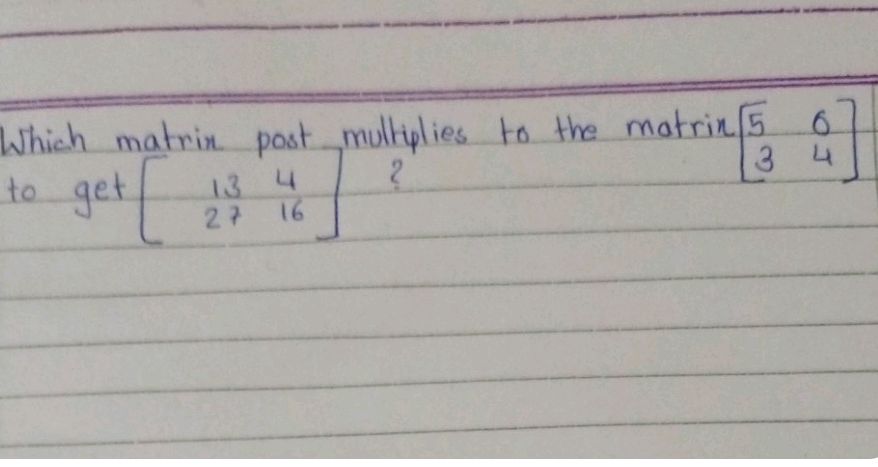 Which matrix post multiplies to the matrix [5 6
3 4]
to get [13 4
27 16] ?